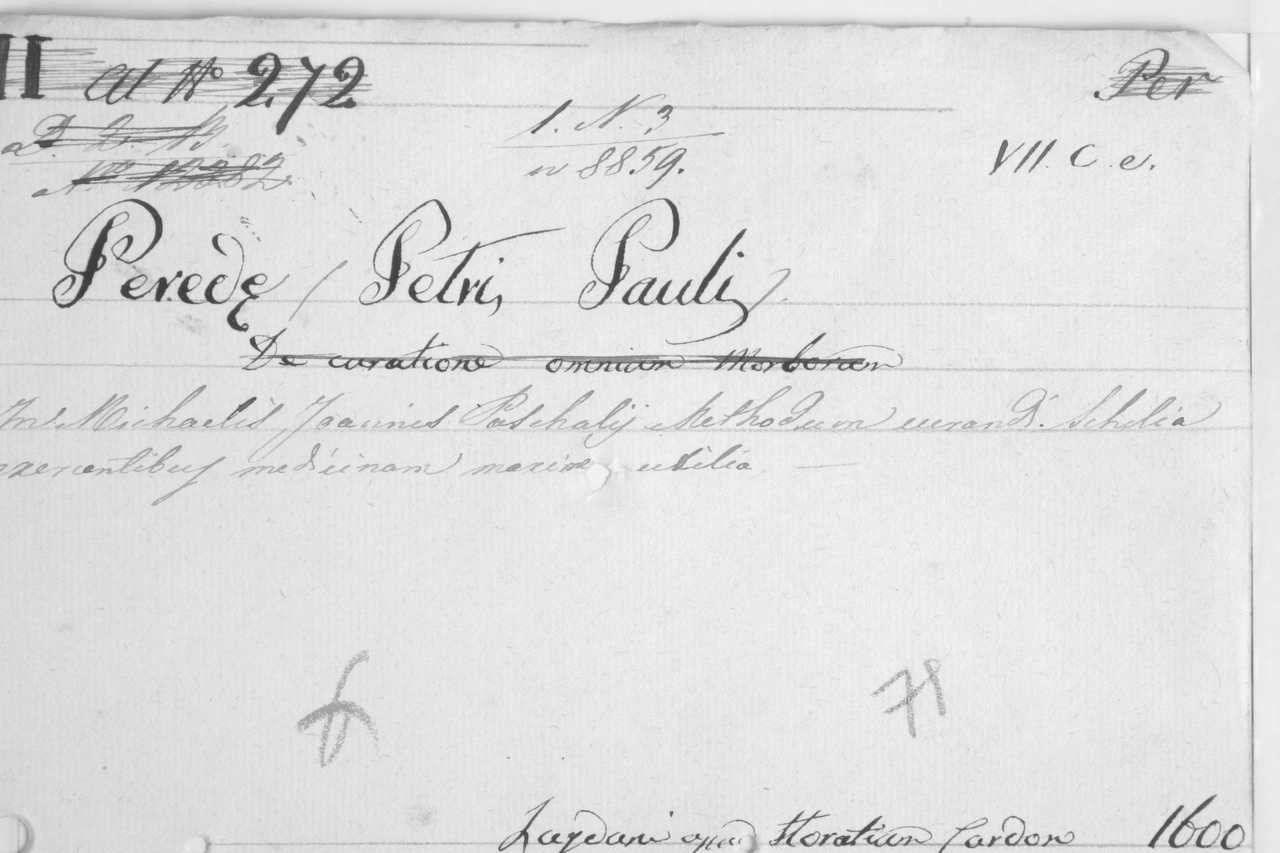 II ad No 272
Per
1. N. 3
n 8859.
VII. C. e.
No 12382
Peredę / Petri, Pauli,
De curatione omnium Morborum
In Michaelis Joannis Paschalij Methodum curandi. Scholia
exercentibus medicinam maxime utilia —
71
Lugduni apud Horatium Cardon 1600